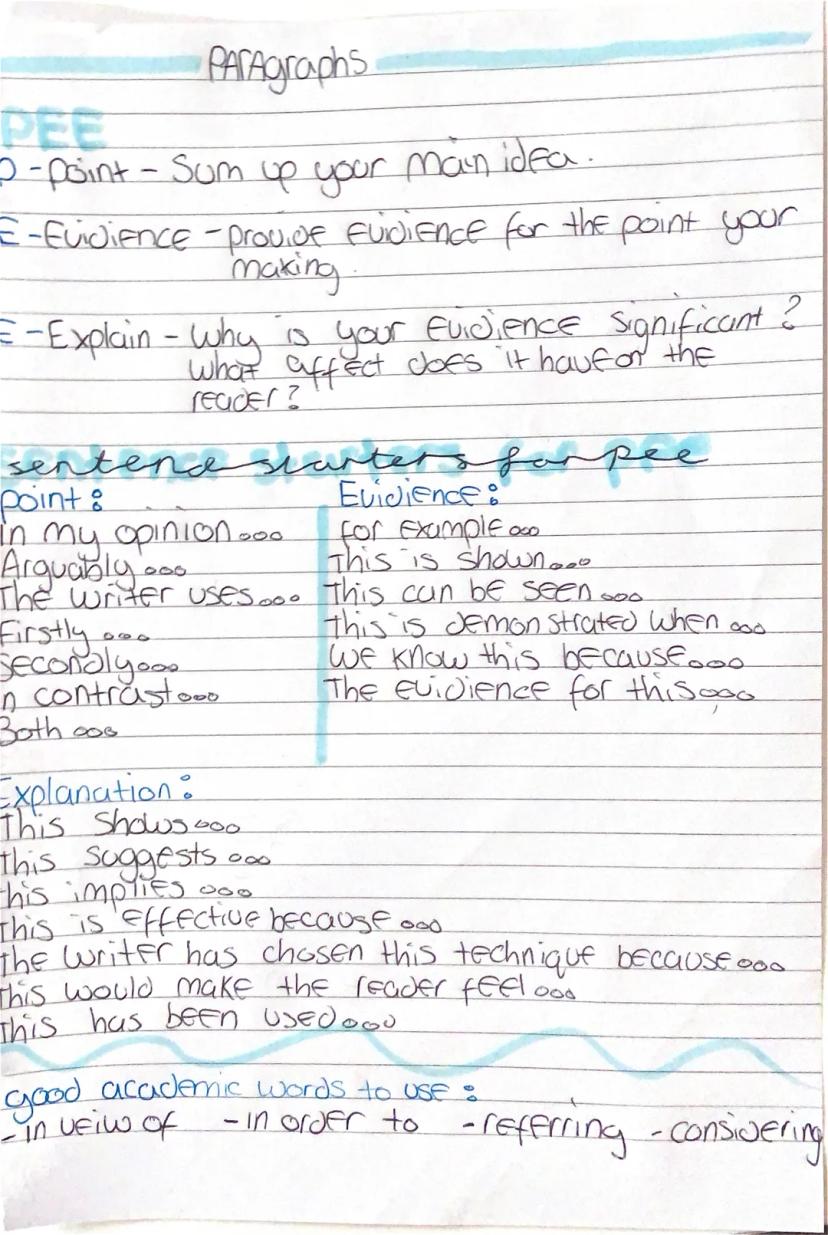 PARAgraphs
PEE
P - point - Sum up your main idea.
E - Evidience - provide evidience for the point your
making.
E - Explain - Why is your Evidience significant?
What affect does it have on the
reader?
sentence starters for pee
point:
In my opinion...
Arguably...
The writer uses...
Firstly...
Secondly...
In contrast...
Both...
Evidience:
for example...
This is shown...
This can be seen...
this is demonstrated when...
We know this because...
The evidience for this...
Explanation:
This shows...
this suggests...
this implies...
this is effective because...
the writer has chosen this technique because...
this would make the reader feel...
this has been used...
good academic words to use:
- in veiw of - in order to - referring - considering